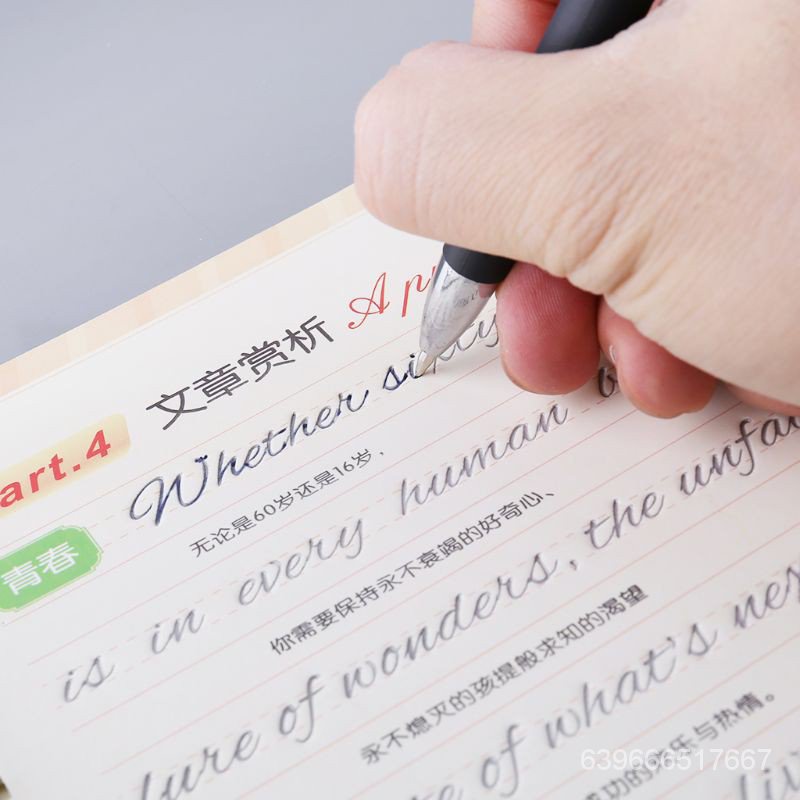 文章赏析 Ap
art.4
Whether sixty
无论是60岁还是16岁，
青春
is in every human
你需要保持永不衰竭的好奇心、
lure of wonders, the unfai
永不熄灭的孩提般求知的渴望
of what's nex
成功的 与热情。
639666517667